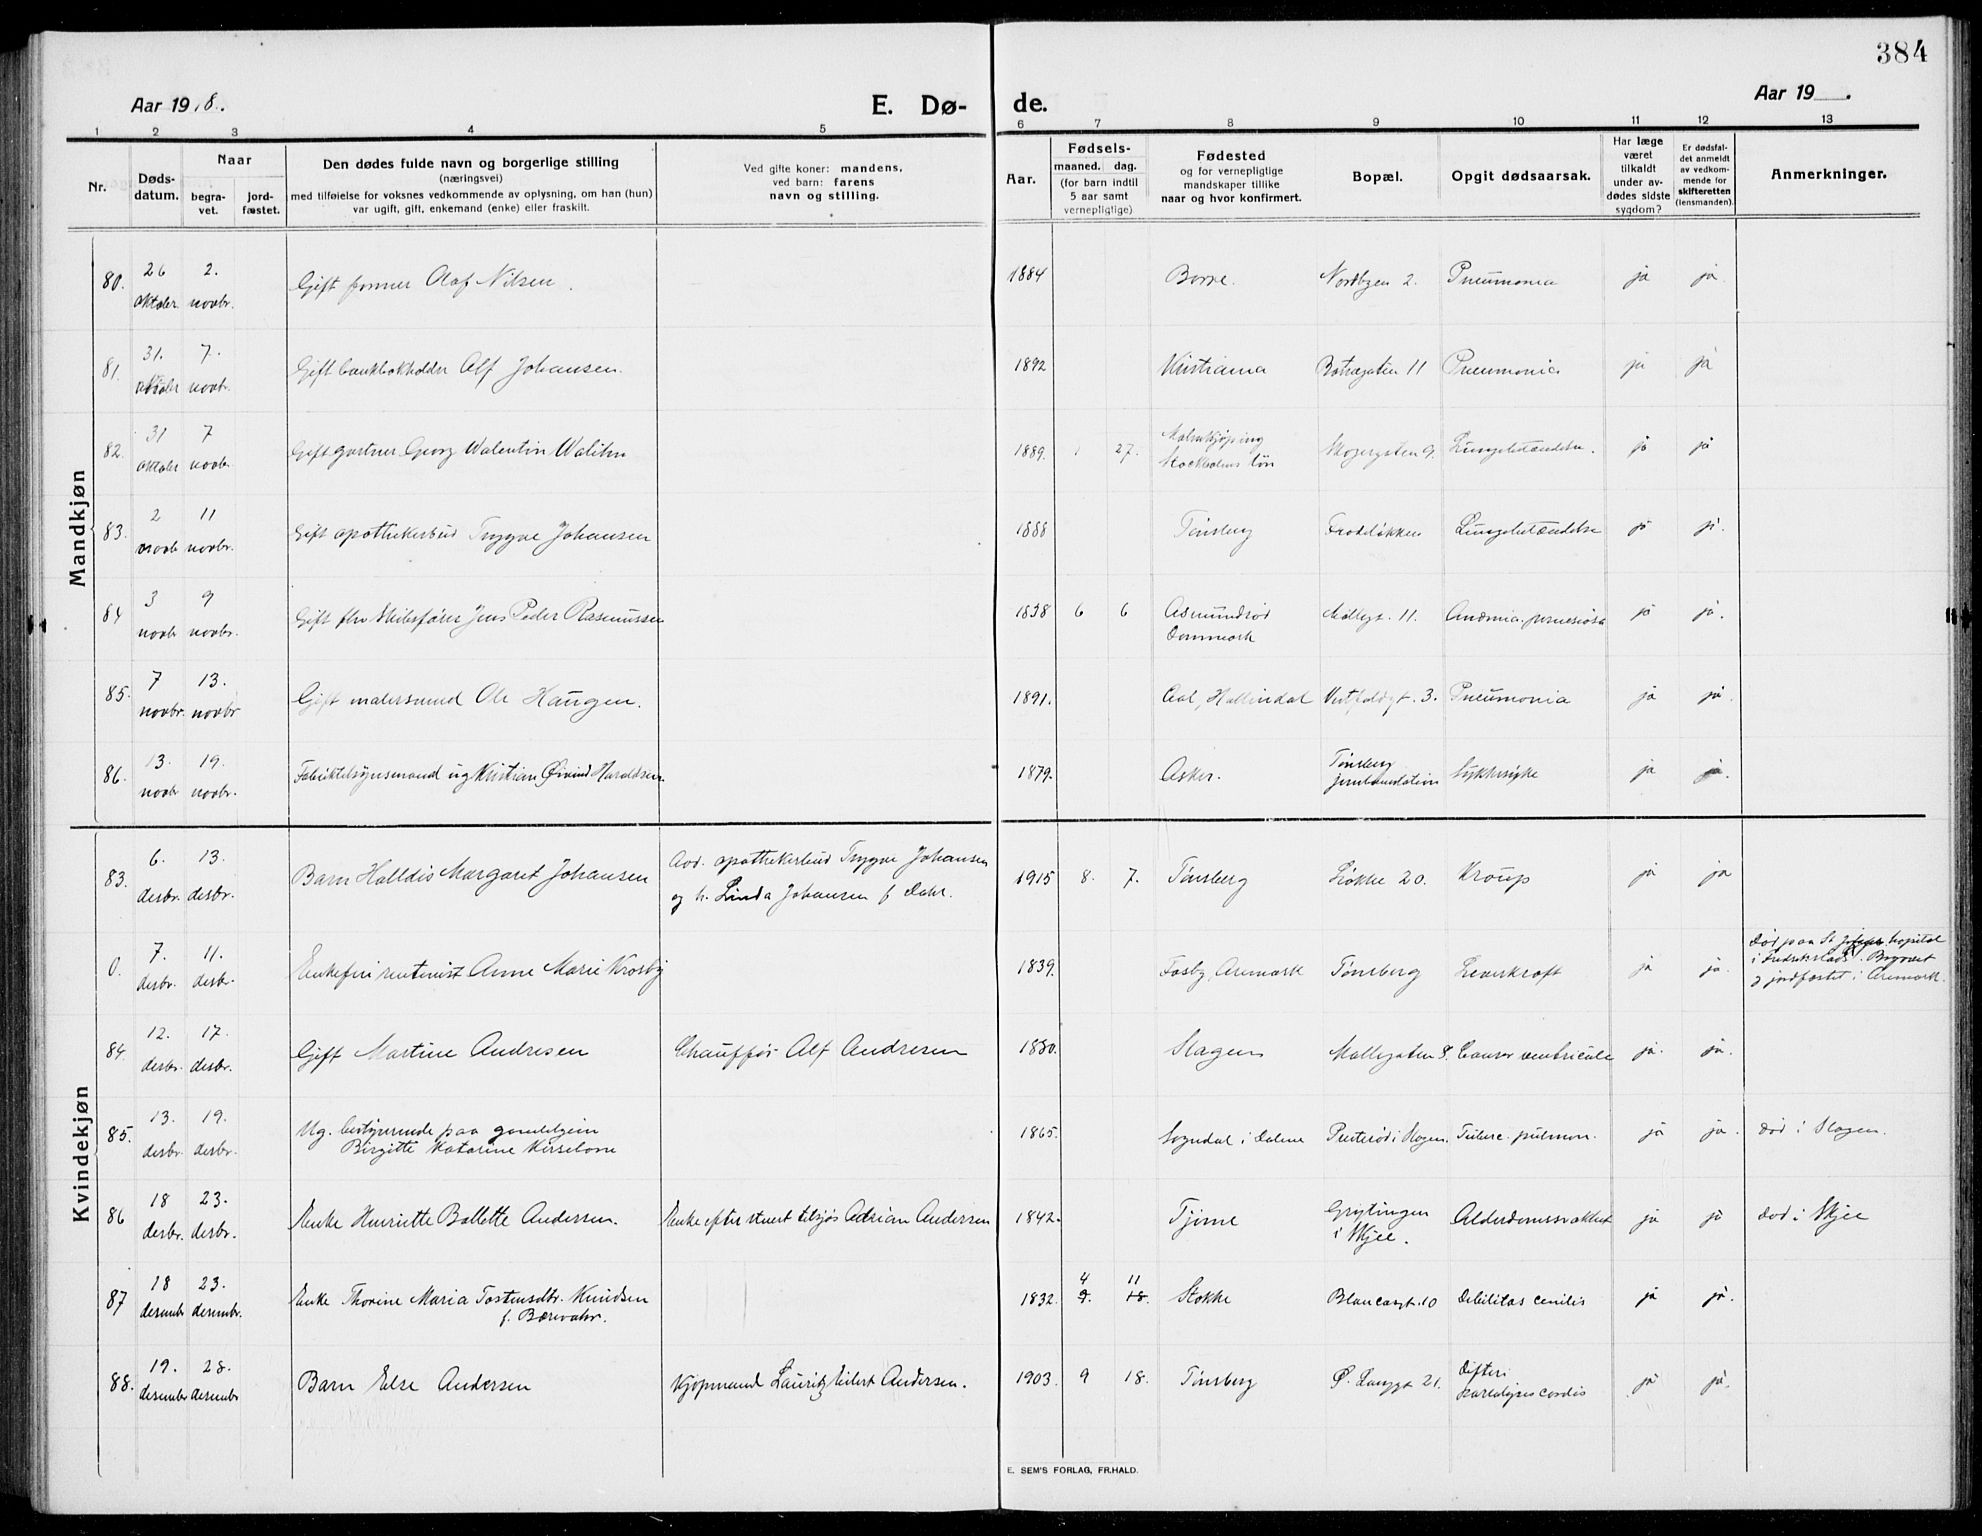 384
Aar 1918.
E. Dø-
de.
Aar 19 .
1 2 3 4 5
6 7 8 9 10 11 12 13
Nr.
Døds-
datum.
Naar
begra-
vet.
jord-
fæstet.
Den dødes fulde navn og borgerlige stilling
(næringsvei)
med tilføielse for voksnes vedkommende av oplysning, om han (hun)
var ugift, gift, enkemand (enke) eller fraskilt.
Ved gifte koner: mandens,
ved barn: farens
navn og stilling.
Aar.
Fødsels-
maaned. dag.
(for barn indtil
5 aar samt
vernepligtige)
Fødested
og for vernepligtige
mandskaper tillike
naar og hvor konfirmert.
Bopæl.
Opgit dødsaarsak.
Har læge
været
tilkaldt
under av-
dødes sidste
sygdom?
Er dødsfal-
det anmeldt
av vedkom-
mende for
skifteretten
(lensmanden).
Anmerkninger.
Mandkjøn
80. 26 oktober 2. novbr. Gift former Olaf Nilsen. 1884 Borre. Nordbyen 2. Pneumonia ja ja.
81. 31. oktober 7. novbr. Gift bankbokholder Alf Johansen. 1892 Kristiania 11 Pneumonia ja ja
82. 31 oktober 7 novbr. Gift gartner Georg Walentin 1889. 1 27. Malmkjøping Stockholms län 9. Lungebetændelse. ja ja
83. 2 novbr 11 novbr. Gift apothekerbud Trygve Johansen 1888 Tønsberg Frodeløkken Lungebetændelse ja ja.
84 3 novbr 9 novbr. Gift fhv skibsfører Jens Peder Rasmussen 1838 6 6 Asmundrød Danmark Møllegt. 11. ja ja.
85. 7 novbr. 13. novbr Gift malersvend Ole Haugen. 1891. Aal, Hallindal Vestfoldgt. 3. Pneumonia ja ja.
86. 13. novbr 19. novbr. ug Kristian Øivind Haraldsen 1879. Asker. Tønsberg jernbanestation Sukkersyke ja ja.
Kvindekjøn
83. 6. desbr. 13. desbr. Barn Halldis Margaret Johansen Avd. apothekerbud Trygve Johansen
og h. Linda Johansen f. Dahr. 1915 8. 7. Tønsberg Løkke 20. Kroup ja ja
0. 7. desbr. 11. desbr. Enkefru rentenist Anne Marie Krosby 1839. Fosby, Aremark Tønsberg Leverkræft ja ja. Død paa St Josephs hospital
i Fredrikstad. Begravet
og jordfæstet i Aremark.
84. 12. desbr. 17. desbr. Gift Martine Andresen Chauffør Alf Andresen 1880. Slagen Møllegaten 8. Cancer ventricule ja. ja.
85. 13. desbr. 19. desbr. Ug. bestyrerinde paa gamlehjem
Birgitte Katarine Kirsebom 1865. Sogndal i Dalene Presterød i Slagen. Tuberc. pulmon. ja ja. Død i Slagen.
86 18 desbr. 23. desbr. Enke Henriette Bollette Andersen. Enke efter stuert tilsjøs Adrian Andersen 1842. Tjøme i Skjee. Alderdomssvakhet ja ja Død i Skjee
87 18 desember 23. desembr. Enke Thorine Maria Tostensdtr. Knudsen
f. 1832. 4 11 9. 18. Stokke 10 Debilitas cenilis ja ja.
88. 19. desembr 28. desembr Barn Else Andersen Kjøpmand Lauritz Eilert Andersen. 1903. 9 18. Tønsberg Ø. Langgt 21. Difteri cordis ja ja.
E. SEM'S FORLAG, FR.HALD.